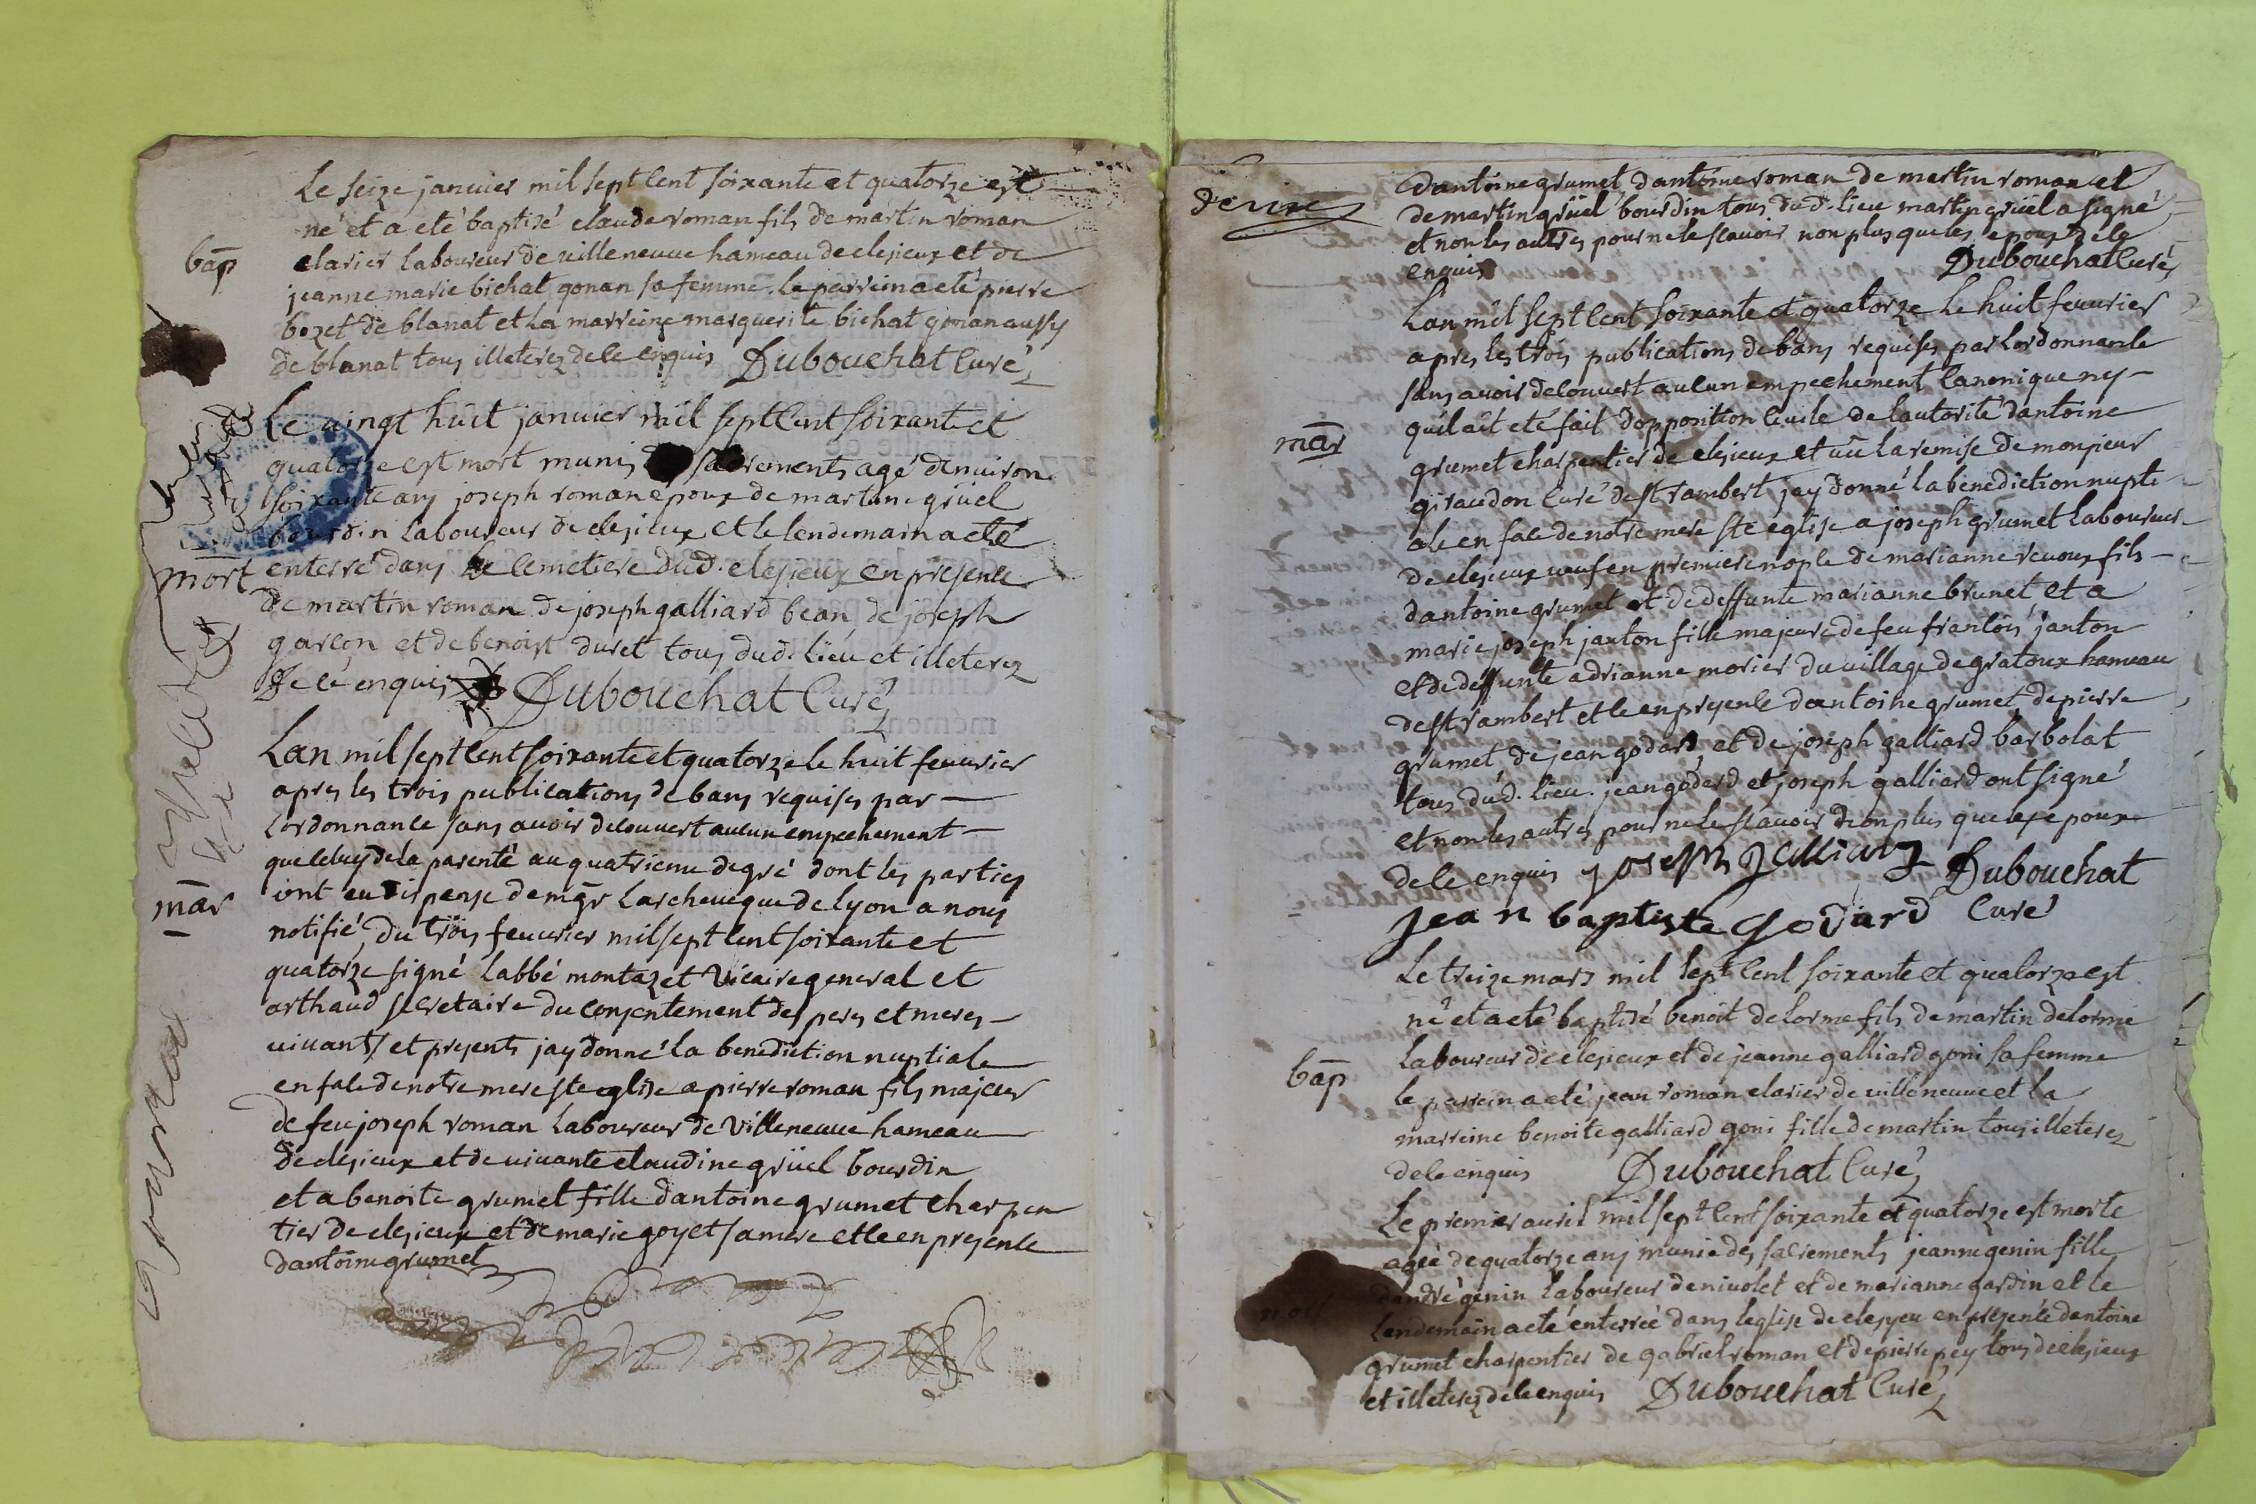 Le seize janvier mil sept cent soixante et quatorze est
né et a eté baptizé claude roman fils de martin roman
bap
clarier laboureur de villeneuve hameau de clesieux et de
jeanne marie bichat gonan sa femme. le parrein a eté pierre
bozet de blanat et la marreine marguerite bichat gonan aussy
de blanat tous illeterez de ce enquis Dubouchat curé
Le vingt huit janvier mil sept cent soixante et
quatorze est mort munis sacrements agé d'environ
soixante ans joseph roman epoux de martine grüel
bourdin laboureur de clesieux et le lendemain a eté
mort
enterré dans le cemetiere dud. clesieux en presence
de martin roman de joseph galliard bean de joseph
garçon et de benoist duret tous dud. lieu et illeterez
de ce enquis Dubouchat curé
Lan mil sept cent soixante et quatorze le huit fevurier
apres les trois publications de bans requises par
lordonnance sans avoir decouvert aucun empechement
que celuy de la parenté au quatrieme degré dont les parties
mar
ont eu dispense de mgr larcheveque de lyon a nous
notifié, du trois fevurier mil sept cent soixante et
quatorze signé labbé montazet vicaire general et
arthaud secretaire du consentement des peres et meres
vivants et presents jay donné la benediction nuptiale
en face de notre mere ste eglise a pierre roman fils majeur
de feu joseph roman laboureur de villeneuve hameau
de clesieux et de vivante claudine grüel bourdin
et a benoite grumet fille dantoine grumet charpen
tier de clesieux et de marie goyet sa mere et ce en presence
dantoine grumet
dantoine grumet, dantoine roman de martin roman et
de martin grüel bourdin tous dud. lieu martin grüel a signé
et non les autres pour ne le scavoir non plus que les epoux de ce
enquis Dubouchat curé
Lan mil sept cent soixante et quatorze le huit fevurier
apres les trois publications de bans requises par lordonnance
sans avoir decouvert aucun empechement canonique ny
quil ait eté fait dopposition civile de lautorité dantoine
mar
grumet charpentier de clesieux et vû la remise de monsieur
giraudon curé de st rambert jay donné la benediction nupti
ale en face de notre mere ste eglise a joseph grumet laboureur
de clesieux veuf en premiere nopce de marianne revoux fils
dantoine grumet et de deffunte marianne brunet et a
marie joseph janton fille majeure de feu francois janton
et de deffunte adrianne morier du village de gratoux hameau
de st rambert et ce en presence dantoine grumet, de pierre
grumet de jean godard et de joseph galliard barbolat
tous dud. lieu. jean godard et joseph galliard ont signé
et non les autres pour ne le scavoir non plus que les epoux
de ce enquis joseph galliard Dubouchat
jean baptiste godard curé
Le treize mars mil sept cent soixante et quatorze est
né et a eté baptizé benoit delorme fils de martin delorme
bap
laboureur de clesieux et de jeanne galliard goni sa femme
le parrein a eté jean roman clarier de villeneuve et la
marreine benoite galliard goni fille de martin tous illeterez
de ce enquis Dubouchat curé
Le premier avril mil sept cent soixante et quatorze est morte
agée de quatorze ans munie des sacrements jeanne genin fille
dandré genin laboureur de nivolet et de marianne gardin et le
mort
lendemain a eté enterrée dans leglise de clesyeu en presence dantoine
grumet charpentier de gabriel roman et de pierre pey tous de clesieux
et illeterez de ce enquis Dubouchat curé